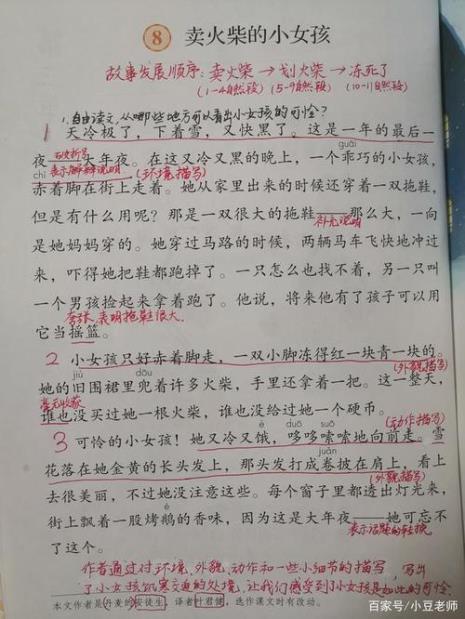 8 卖火柴的小女孩
故事发展顺序：卖火柴→划火柴→冻死了
(1-4自然段) (5-9自然段) (10-11自然段)
1.自由读文，从哪些地方可以看出小女孩的可怜？
1 天冷极了，下着雪，又快黑了。这是一年的最后一
guāi
夜——大年夜。在这又冷又黑的晚上，一个乖巧的小女孩，
破折号
chì 表示解释说明 (环境描写)
赤着脚在街上走着。她从家里出来的时候还穿着一双拖鞋，
但是有什么用呢？那是一双很大的拖鞋——那么大，一向
补充说明
是她妈妈穿的。她穿过马路的时候，两辆马车飞快地冲过
来，吓得她把鞋都跑掉了。一只怎么也找不着，另一只叫
一个男孩捡起来拿着跑了。他说，将来他有了孩子可以用
夸张，表明拖鞋很大。
它当摇篮。
2 小女孩只好赤着脚走，一双小脚冻得红一块青一块的。
jiù dōu (外貌描写)
她的旧围裙里兜着许多火柴，手里还拿着一把。这一整天，
毫无收获
谁也没买过她一根火柴，谁也没给过她一个硬币。
è duō suō (动作描写)
3 可怜的小女孩！她又冷又饿，哆哆嗦嗦地向前走。雪
juǎn
花落在她金黄的长头发上，那头发打成卷披在肩上，看上
(外貌描写)
去很美丽，不过她没注意这些。每个窗子里都透出灯光来，
é
街上飘着一股烤鹅的香味，因为这是大年夜——她可忘不
表示话题的转换
了这个。
作者通过对环境、外貌、动作和一些小细节的描写，写出
了小女孩饥寒交迫的处境，让我们感受到了小女孩是如此的可怜
本文作者是丹麦的安徒生，译者叶君健，选作课文时有改动。
百家号/小豆老师